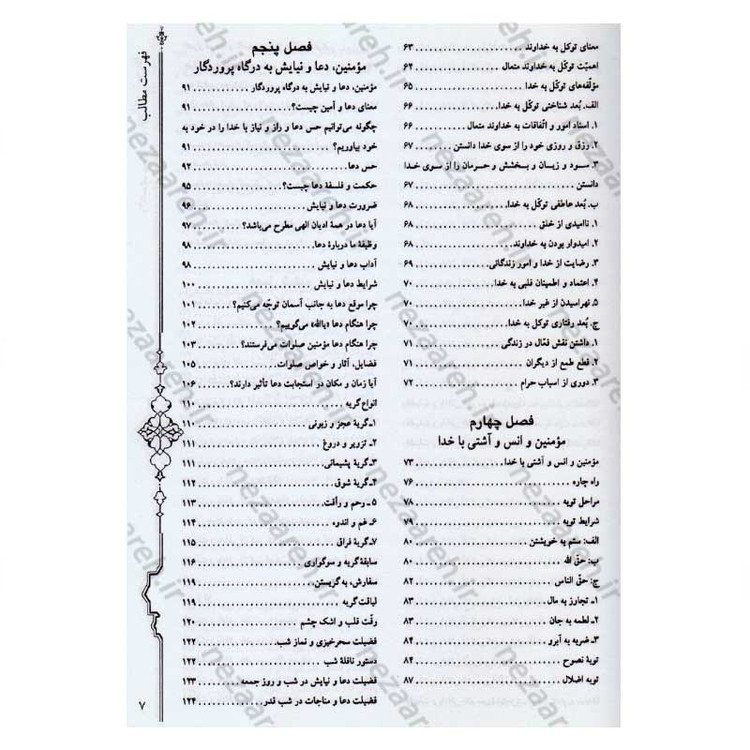 فهرست مطالب
معنای توکل به خداوند ۶۳
اهمیّت توکّل به خداوند متعال ۶۴
مؤلّفه‌های توکّل به خدا ۶۵
الف. بُعد شناختی توکّل به خدا ۶۶
۱. اسناد امور و اتّفاقات به خداوند متعال ۶۶
۲. رزق و روزی خود را از سوی خدا دانستن ۶۷
۳. سود و زیان و بخشش و حرمان را از سوی خدا
دانستن ۶۷
ب. بُعد عاطفی توکّل به خدا ۶۸
۱. ناامیدی از خلق ۶۸
۲. امیدوار بودن به خداوند ۶۸
۳. رضایت از خدا و امور زندگانی ۶۹
۴. اعتماد و اطمینان قلبی به خدا ۷۰
۵. نهراسیدن از غیر خدا ۷۰
ج. بُعد رفتاری توکل به خدا ۷۰
۱. داشتن نقش فعّال در زندگی ۷۱
۲. قطع طمع از دیگران ۷۱
۳. دوری از اسباب حرام ۷۲
فصل چهارم
مؤمنین و انس و آشتی با خدا
مؤمنین و انس و آشتی با خدا ۷۳
راه چاره ۷۶
مراحل توبه ۷۸
شرایط توبه ۷۹
الف: ستم به خویشتن ۸۰
ب: حقّ الله ۸۰
ج: حقّ الناس ۸۲
۱ـ تجاوز به مال ۸۳
۲ـ لطمه به جان ۸۳
۳ـ ضربه به آبرو ۸۴
توبهٔ نصوح ۸۴
توبه اضلال ۸۷
فصل پنجم
مؤمنین، دعا و نیایش به درگاه پروردگار
مؤمنین، دعا و نیایش به درگاه پروردگار ۹۱
معنای دعا و آمین چیست؟ ۹۱
چگونه می‌توانیم حس دعا و راز و نیاز با خدا را در خود به
خود بیاوریم؟ ۹۱
حس دعا ۹۲
حکمت و فلسفهٔ دعا چیست؟ ۹۵
ضرورت دعا و نیایش ۹۶
آیا دعا در همهٔ ادیان الهی مطرح می‌باشد؟ ۹۷
وظیفهٔ ما دربارهٔ دعا ۹۸
آداب دعا و نیایش ۹۸
شرایط دعا و نیایش ۱۰۰
چرا موقع دعا به جانب آسمان توجّه می‌کنیم؟ ۱۰۱
چرا هنگام دعا «یاالله» می‌گوییم؟ ۱۰۲
چرا هنگام دعا مؤمنین صلوات می‌فرستند؟ ۱۰۳
فضایل، آثار و خواص صلوات ۱۰۵
آیا زمان و مکان در استجابت دعا تأثیر دارند؟ ۱۰۶
انواع گریه ۱۱۰
۱ـ گریهٔ عجز و زبونی ۱۱۰
۲ـ تزویر و دروغ ۱۱۱
۳ـ گریهٔ پشیمانی ۱۱۱
۴ـ گریهٔ شوق ۱۱۲
۵ـ رحم و رأفت ۱۱۳
۶ـ غم و اندوه ۱۱۴
۷ـ گریهٔ فراق ۱۱۵
سابقهٔ گریه و سوگواری ۱۱۶
سفارش، به گریستن ۱۱۹
لیاقت گریه ۱۱۹
رقّت قلب و اشک چشم ۱۲۰
فضیلت سحرخیزی و نماز شب ۱۲۲
دستور نافلهٔ شب ۱۲۲
فضیلت دعا و نیایش در شب و روز جمعه ۱۲۳
فضیلت دعا و مناجات در شب قدر ۱۲۴
۷
nezaareh.ir